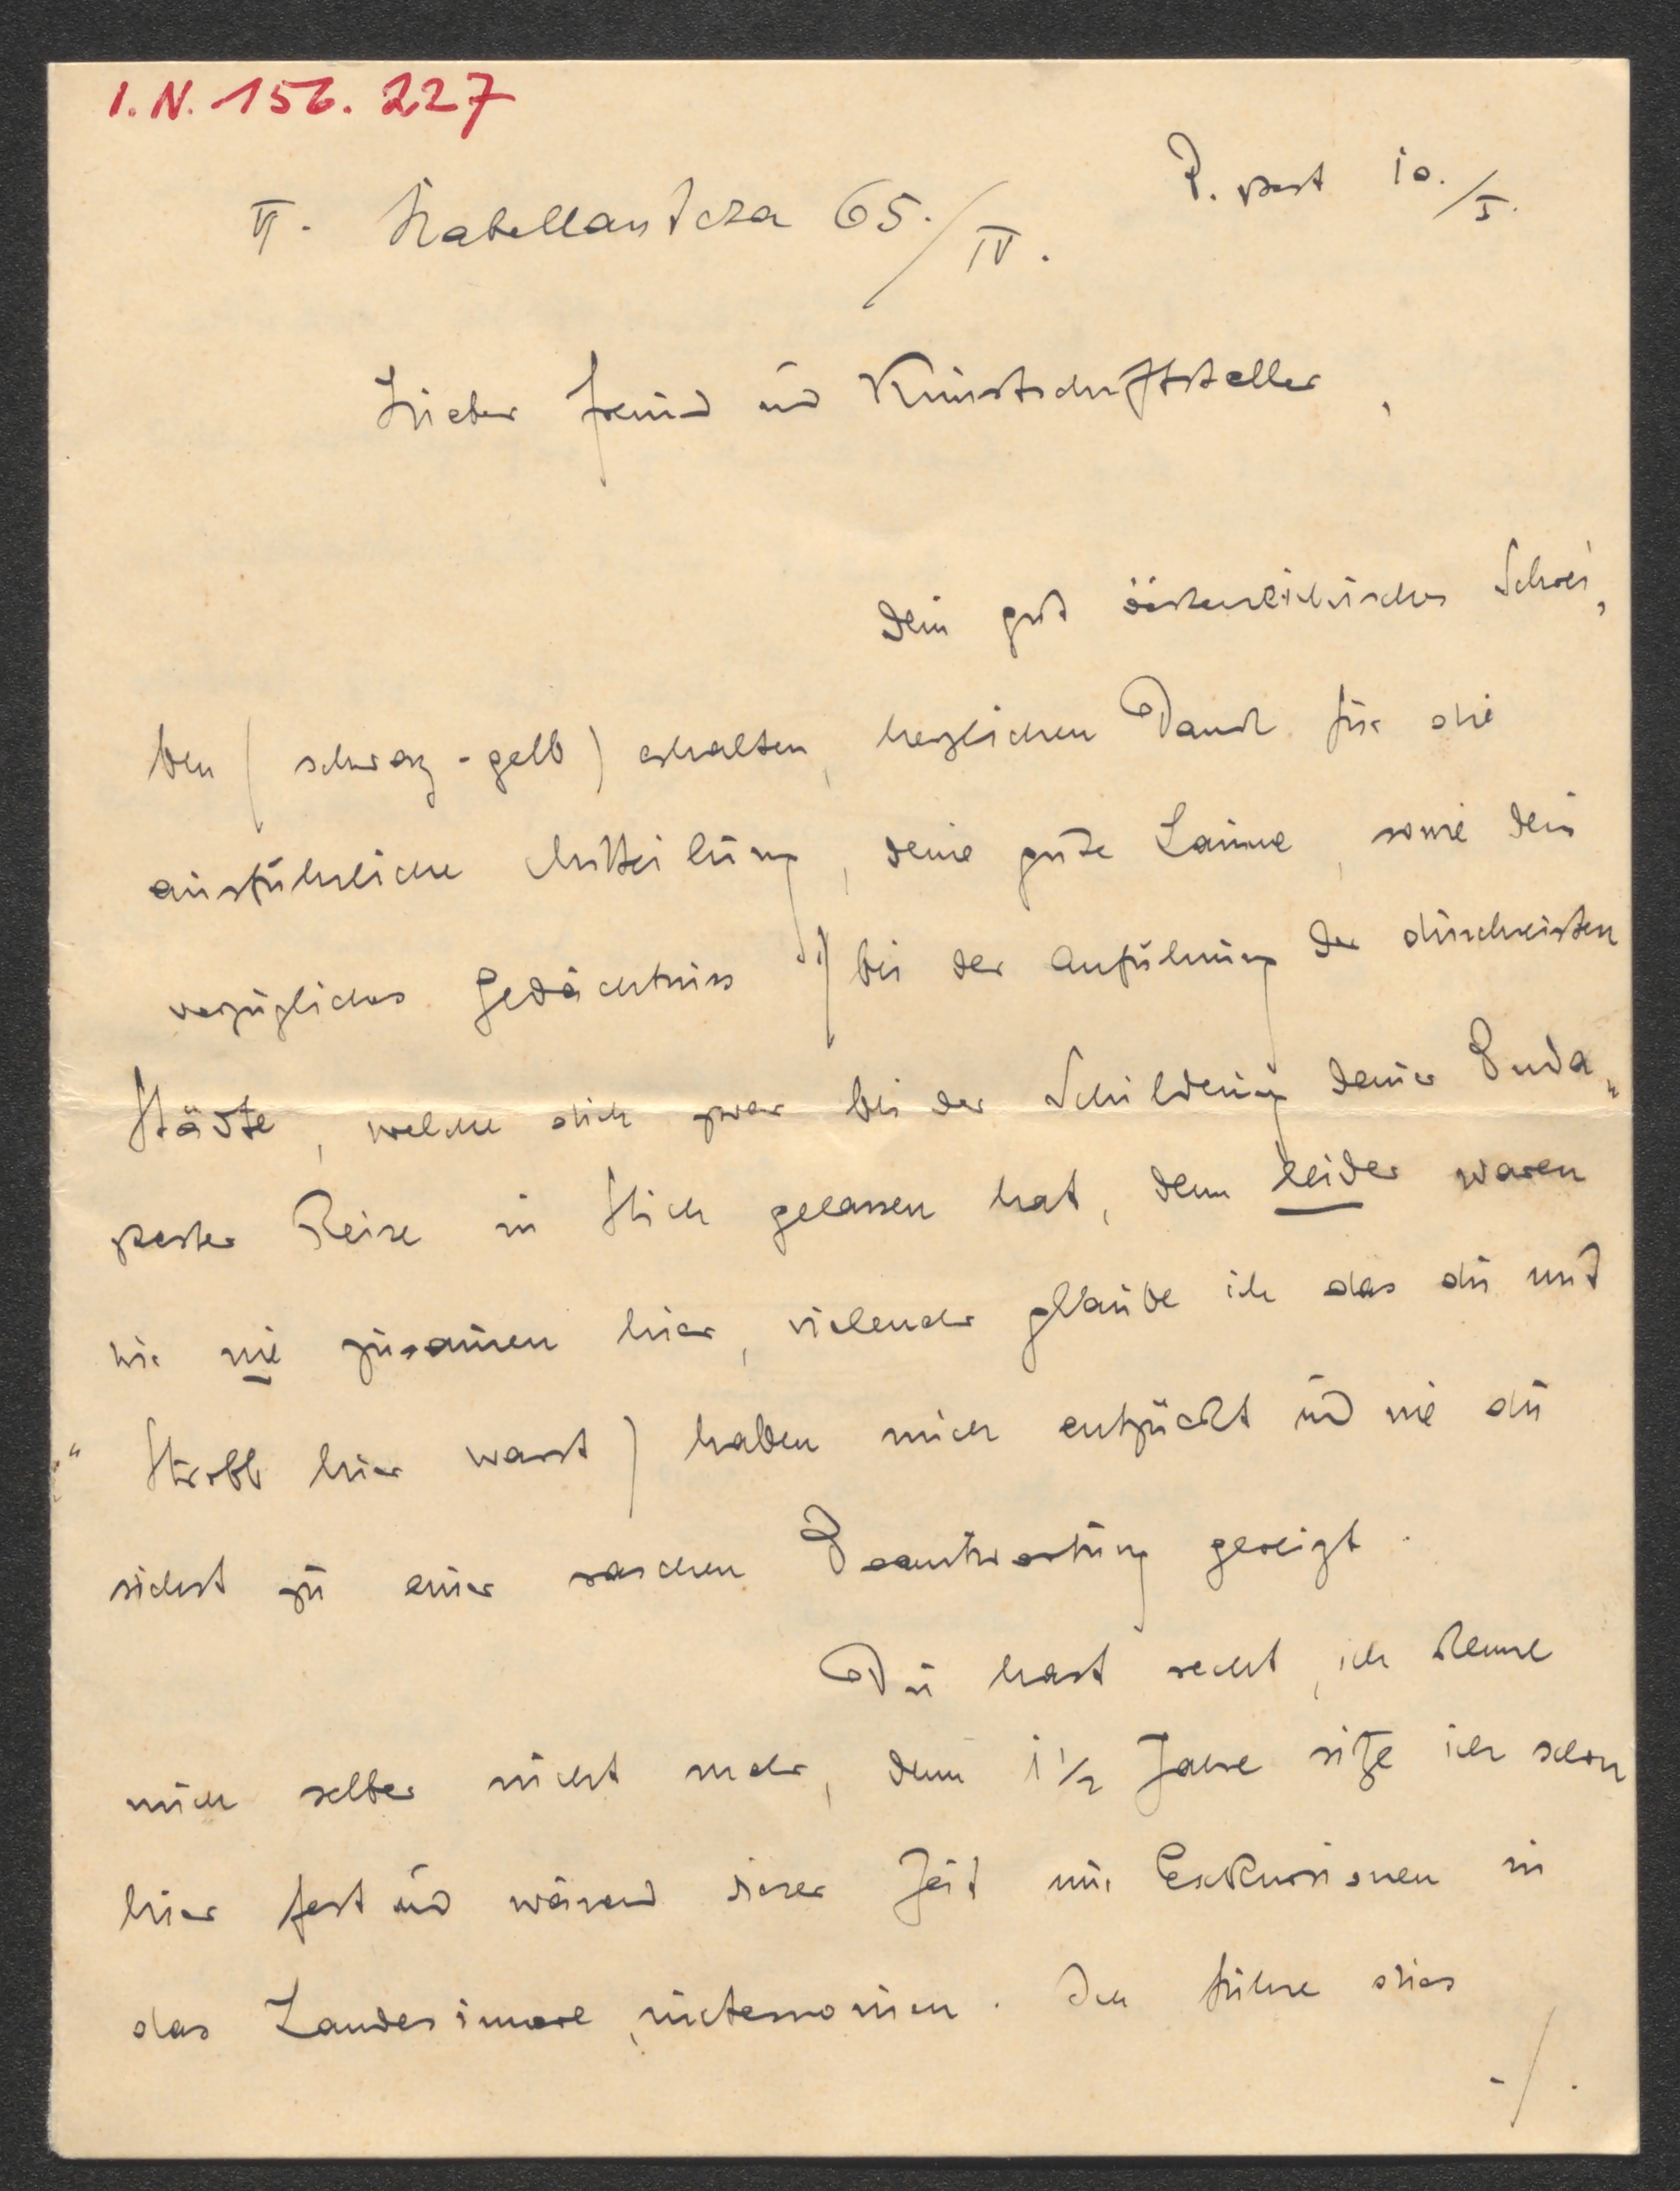 I.N. 156.227
B. pest 10./I.
VI. Isabellautcza 65./IV.
Lieber Freund und Kunstschriftsteller,
Dein gut österreichisches Schrei,
ben (schwarz-gelb) erhalten, herzlichen Dank für die
ausführliche Mitteilung, deine gute Laune, sowie dein
vorzügliches Gedächtniss (bei der Anführung der durchreisten
Städte, welche dich zwar bei der Schilderung deiner Buda„
pester Reise in Stich gelassen hat, denn leider waren
wir nie zusamen hier, vielmehr glaube ich das du mit
„Strobl hier warst) haben mich entzückt und wie du
siehst zu einer raschen Beantwortung gereizt.
Du hast recht, ich kenne
mich selber nicht mehr, denn 1½ Jahre sitze ich schon
hier fest und wärend dieser Zeit nur Exkursionen in
das Landesinnere unternomen. Ich führe dies
-/.